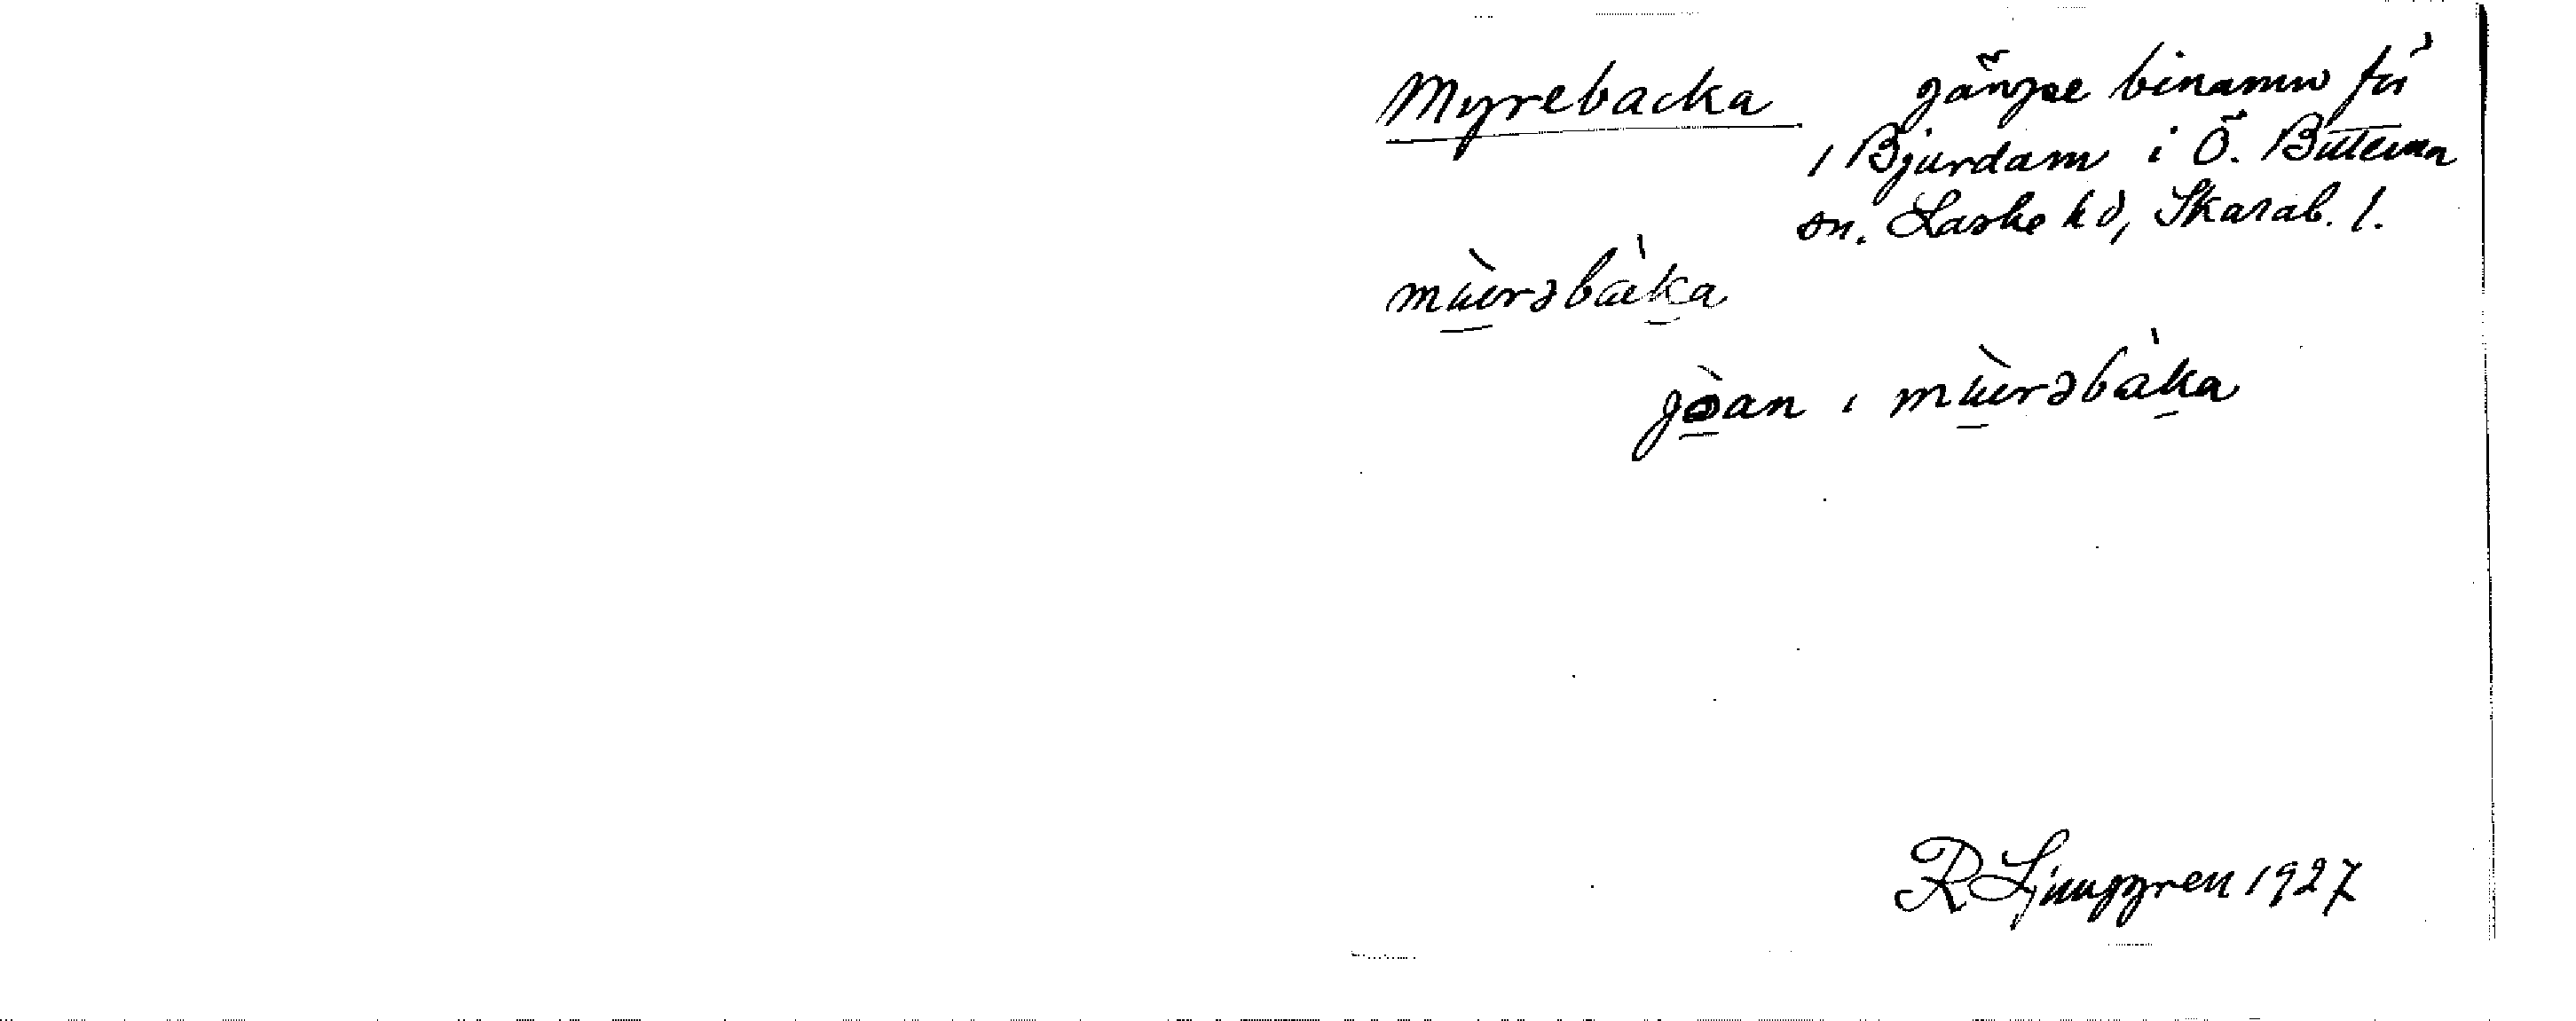 Myrebacka gängse binamn för
1 Bjurdam i Ö. Bitterna
sn. Laske hd, Skarab. l.
mùᵫrəbàka
jòan i mùᵫrəbàka
R Ljunggren 1927